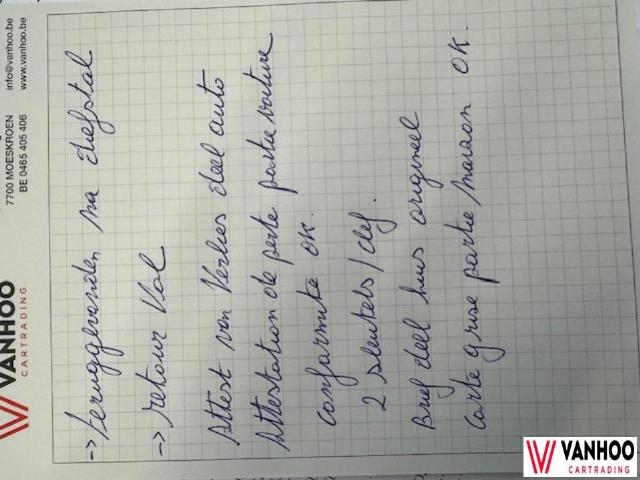 VANHOO
CARTRADING
7700 MOESKROEN
BE 0465 405 406
info@vanhoo.be
www.vanhoo.be
-> teruggevonden na diefstal
-> retour Vol
Attest van Verlies deel auto
Attestation de perte partie voiture
conformité ok.
2 sleutels/clef.
Brief deel huis origineel
Carte grise partie maison OK.
VANHOO
CARTRADING